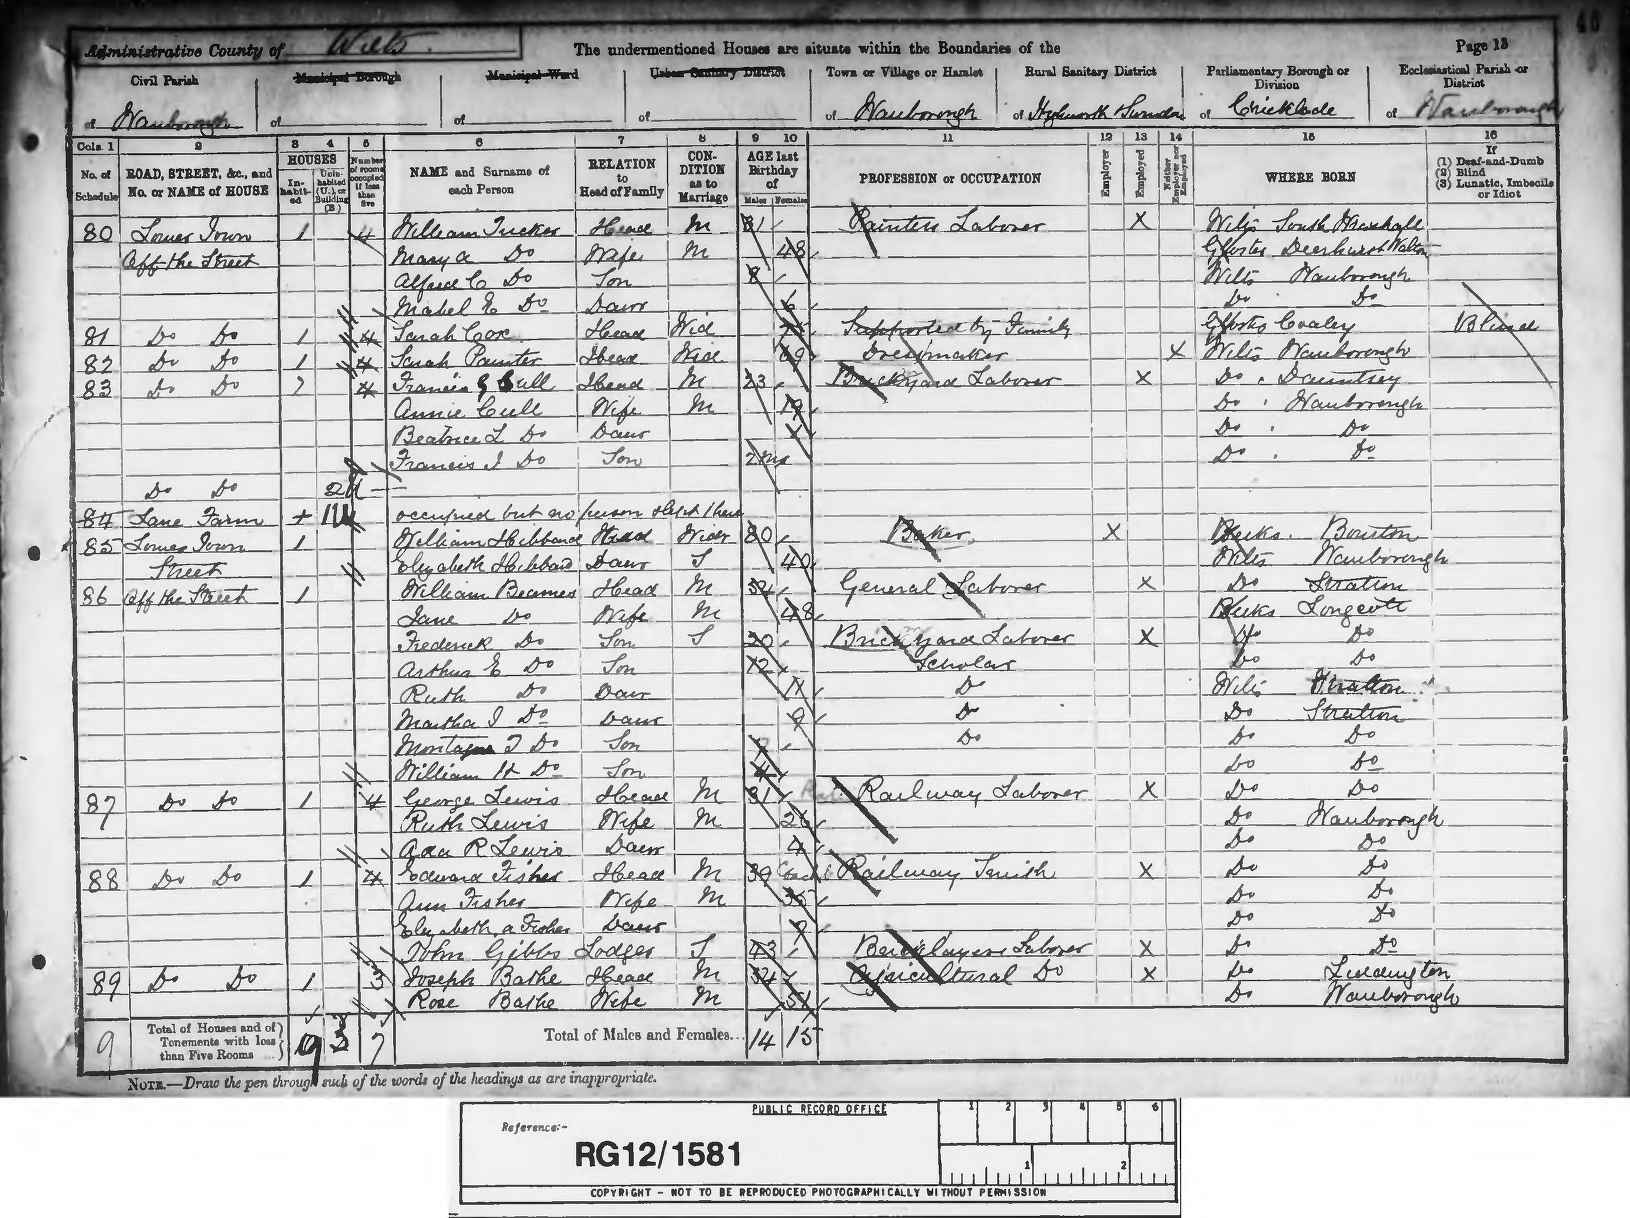 46
Administrative County of Wilts. The undermentioned Houses are situate within the Boundaries of the Page 13
Civil Parish Municipal Borough Municipal Ward Urban Sanitary District Town or Village or Hamlet Rural Sanitary District Parliamentary Borough or Division Ecclesiastical Parish or District
of Wanborough of of of of Wanborough of Highworth & Swindon of Cricklade of Wanborough
Cols. 1 2 3 4 5 6 7 8 9 10 11 12 13 14 15 16
No. of Schedule ROAD, STREET, &c., and No. or NAME of HOUSE HOUSES Inhabited Uninhabited (U.), or Building (B) Number of rooms occupied if less than five NAME and Surname of each Person RELATION to Head of Family CONDITION as to Marriage AGE last Birthday of Males Females PROFESSION or OCCUPATION Employer Employed Neither Employer nor Employed WHERE BORN If (1) Deaf-and-Dumb (2) Blind (3) Lunatic, Imbecile or Idiot
80 Lower Town 1 4 William Tucker Head M 31 Painters Laborer X Wilts South
off the Street Mary A Do Wife M 48 Glosters Deerhurst Walton
Alfred C Do Son 8 Wilts Wanborough
Mabel E Do Daur 6 Do Do
81 Do Do 1 4 Sarah Cox Head Wid Supported by Family Glosters Coaley Blind
82 Do Do 1 4 Sarah Painter Head Wid 69 Dressmaker X Wilts Wanborough
83 Do Do 4 Francis G Cull Head M 23 Brickyard Laborer X Do Dauntsey
Annie Cull Wife M 19 Do Wanborough
Beatrice L Do Daur Do Do
Francis J Do Son 2 ms Do Do
Do Do 2
84 Lane Farm + occupied but no person slept there
85 Lower Town 1 William Hibbard Head Widr 80 Baker X Berks. Bourton
Street Elizabeth Hibbard Daur S 40 Wilts Wanborough
86 off the Street 1 William Beames Head M 54 General Laborer X Do Stratton
Jane Do Wife M 48 Berks Longcott
Frederick Do Son S 20 Brickyard Laborer X Do Do
Arthur E Do Son 12 Scholar Do Do
Ruth Do Daur 11 Do Wilts Stratton
Martha J Do Daur 9 Do Do Stratton
Montague T Do Son 7 Do Do Do
William H Do Son 4 Do Do
87 Do Do 1 4 George Lewis Head M 31 Railway Laborer X Do Do
Ruth Lewis Wife M 26 Do Wanborough
Ada R Lewis Daur 4 Do Do
88 Do Do 1 4 Edward Fisher Head M 39 Railway Smith X Do Do
Ann Fisher Wife M 35 Do Do
Elizabeth A Fisher Daur 9 Do Do
John Gibbs Lodger S 43 Bricklayers Laborer X Do Do
89 Do Do 1 3 Joseph Bathe Head M 54 Agricultural Do X Do Liddington
Rose Bathe Wife M 51 Do Wanborough
9 Total of Houses and of Tenements with less than Five Rooms 9 3 7 Total of Males and Females... 14 15
NOTE.—Draw the pen through such of the words of the headings as are inappropriate.
PUBLIC RECORD OFFICE 1 2 3 4 5 6
Reference:-
RG12/1581
1 2
COPYRIGHT - NOT TO BE REPRODUCED PHOTOGRAPHICALLY WITHOUT PERMISSION